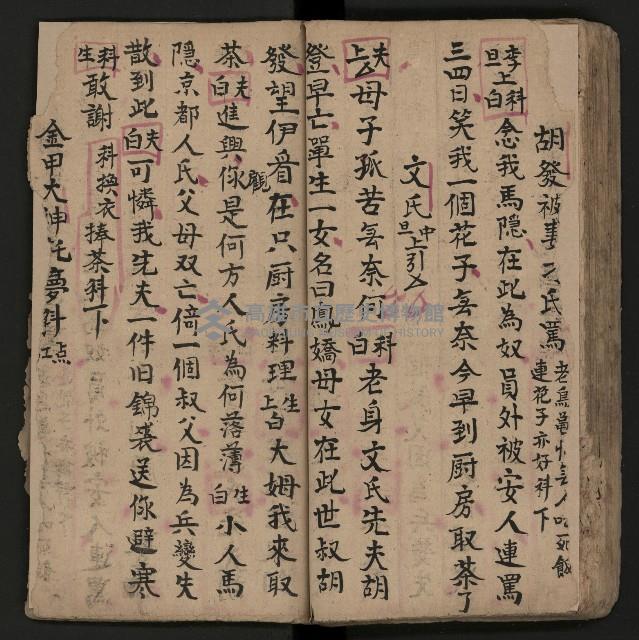 胡發被妻文氏罵 老烏龜 人吃死飯 連花子亦好科下
李上科 旦白 念我馬隐在此為奴員外被安人連罵
三四日笑我一個花子無奈今早到厨房取茶了
文氏 旦中上引
夫上 母子孤苦無奈何 科白 老身文氏先夫胡
登早亡單生一女名曰 嬌母女在此世叔胡
發望伊看觀在只厨房料理 生上白 大姆我來取
茶 夫白 進興你是何方人氏為何落薄 生白 小人馬
隐京都人氏父母双亡倚一個叔父因為兵變失
散到此 夫白 可憐我先夫一件旧錦裘送你避寒
生科 敢謝 科換衣 捧茶科下
金甲大神托夢科 点江
高雄市立歷史博物館
KAOHSIUNG MUSEUM OF HISTORY